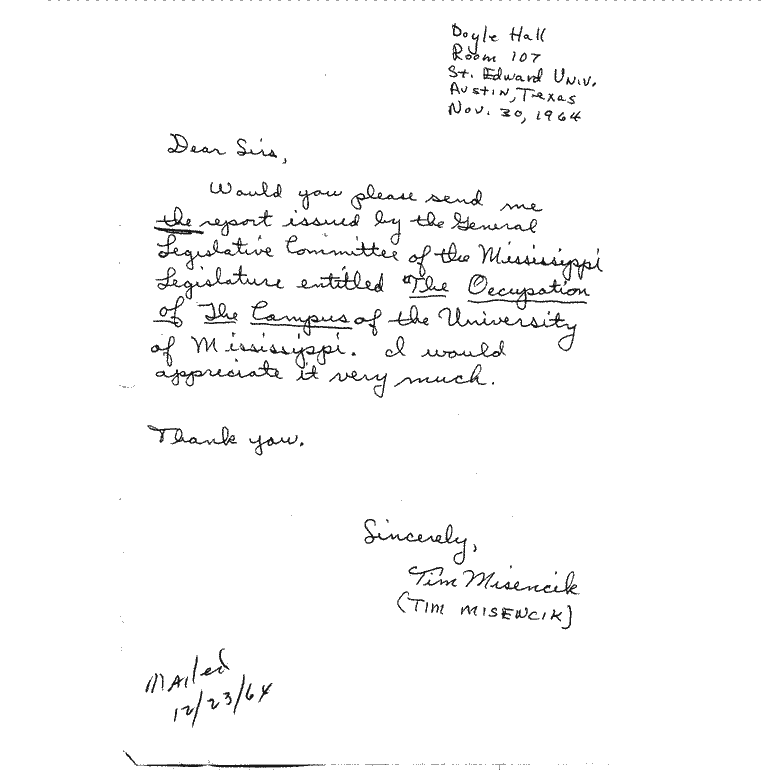 Doyle Hall
Room 107
St. Edward Univ.
Austin, Texas
Nov. 30, 1964
Dear Sirs,
Would you please send me
the report issued by the General
Legislative Committee of the Mississippi
Legislature entitled "The Occupation
of The Campus of the University
of Mississippi. I would
appreciate it very much.
Thank you.
Sincerely,
Tim Misencik
(TIM MISENCIK)
Mailed
12/23/64